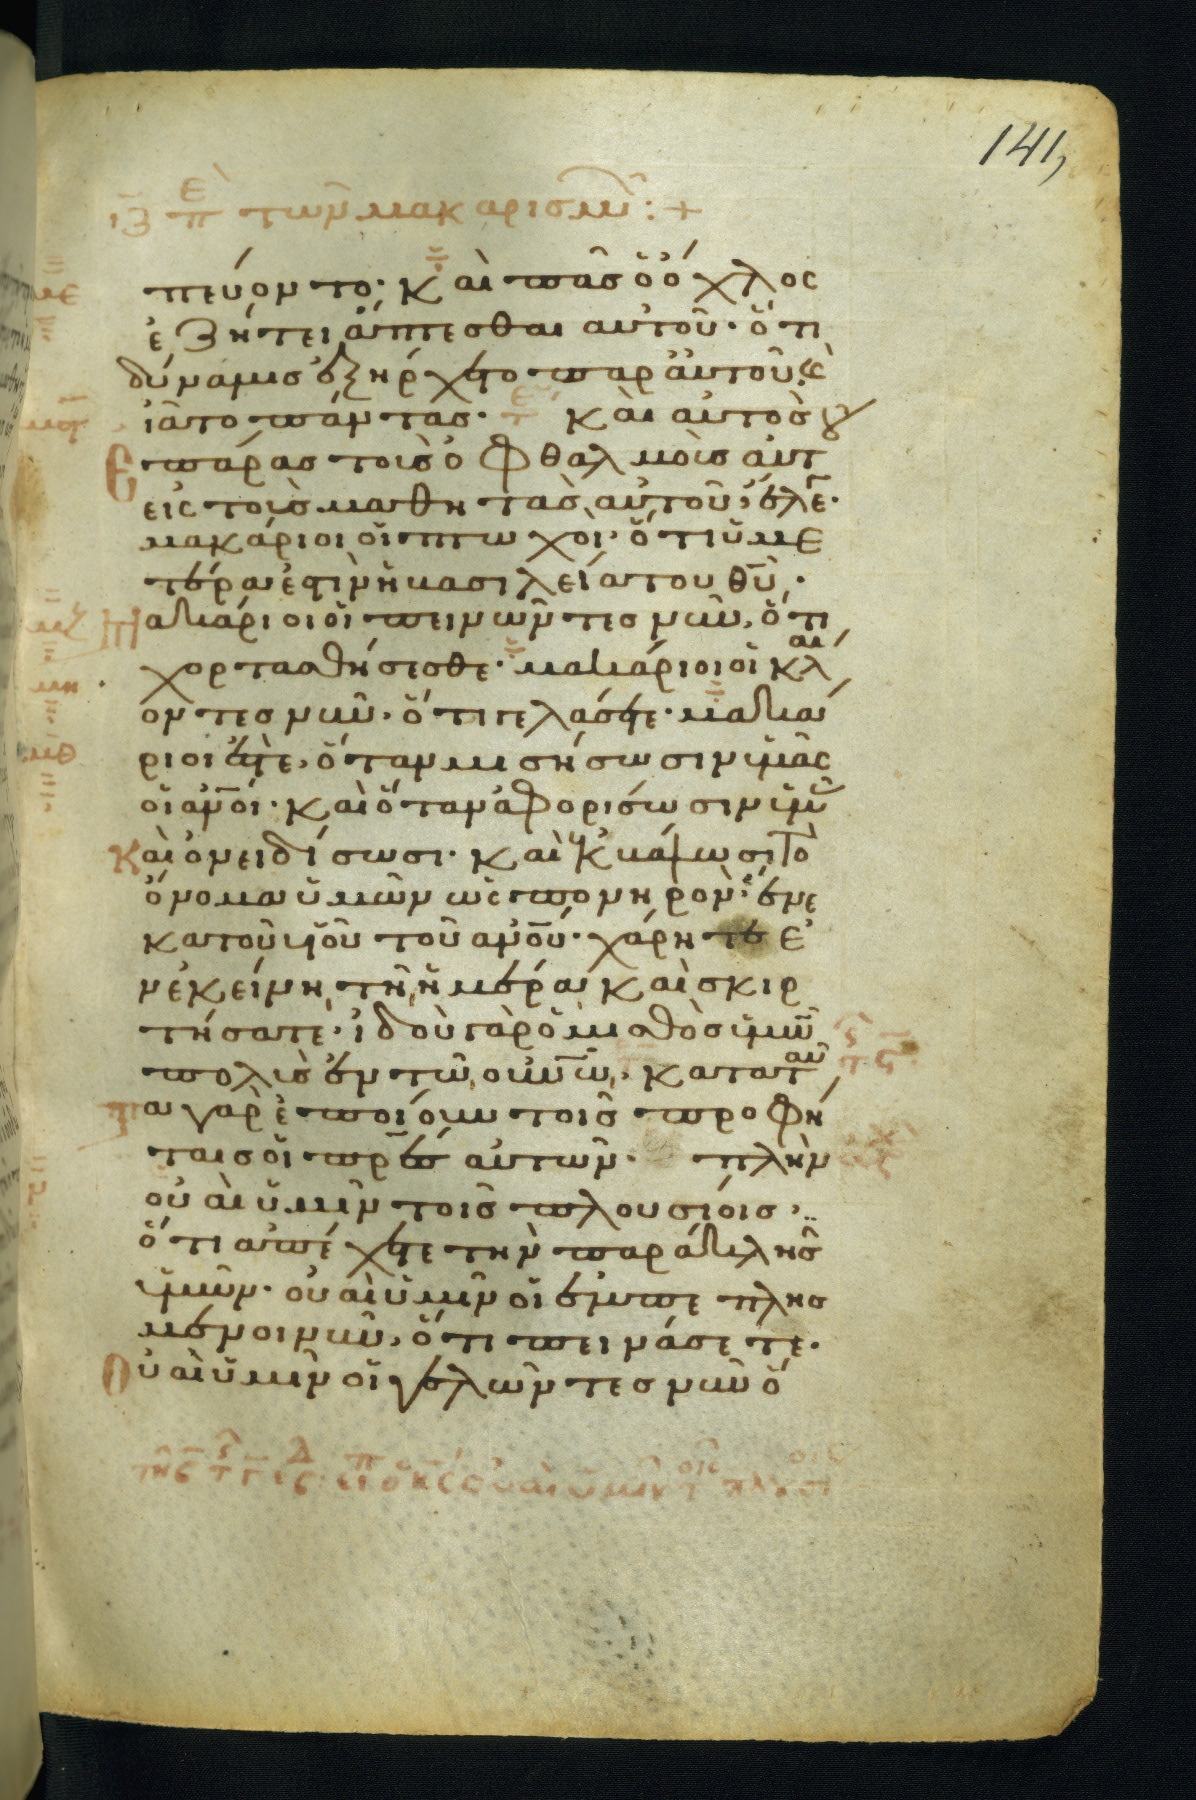 141,
ιζ ΕΠ τῶν μακαρισμῶ: +
πεύοντο· Καὶ πᾶσ ὁ ὄχλος
ἐζήτει ἅπτεσθαι αὐτοῦ· ὅτι
δύναμισ ἐξήρχετο παρ αὐτοῦ, (καὶ)
ἰᾶτο πάντασ· καὶ αὐτὸσ
ἐπάρασ τοὺσ ὀφθαλμοὺσ αὐτ
εἰς τοὺσ μαθητὰσ αὐτοῦ, ἔλεγ·
μακάριοι οἱ πτωχοὶ· ὅτι ὑμε
τέρα ἐστὶν ἡ βασιλεία του θ͞υ·
Μακάριοι οἱ πεινῶντεσ νῦν, ὅτι
χορτασθήσεσθε· μακάριοι οἱ κλαί
οντεσ νῦν· ὅτι γελάσετε· μακά
ριοι ἐστὲ, ὅταν μισήσωσιν ὑμᾶς
οἱ α͞νοί· καὶ ὅταν ἀφορίσωσιν ὑμᾶ
Καὶ ὀνειδίσωσι· καὶ ἐκβάλωσι τὸ
ὄνομα ὑμῶν ὡς πονηρὸν ἕνε
κα τοῦ υἱοῦ τοῦ α͞νου· χάρητε ἐ
ν ἐκείνη τῆ ἡμέρα καὶ σκιρ
τήσατε· ἰδοὺ γὰρ ὁ μισθὸσ ὑμῶ
πολὺσ ἐν τῶ ου͞νω· κατα ταῦ
τα γὰρ ἐποίουν τοῖσ προφή
ταισ οἱ π͞ρεσ αὐτῶν· πλὴν
οὐαὶ ὑμῖν τοῖσ πλουσίοισ,
ὅτι ἀπέχετε τὴν παράκλησ
ὑμῶν· οὐαὶ ὑμῖν οἱ ἐμπεπλησ
μένοι νῦν, ὅτι πεινάσετε·
Οὐαὶ ὑμῖν οἱ γελῶντεσ νῦν ὅ